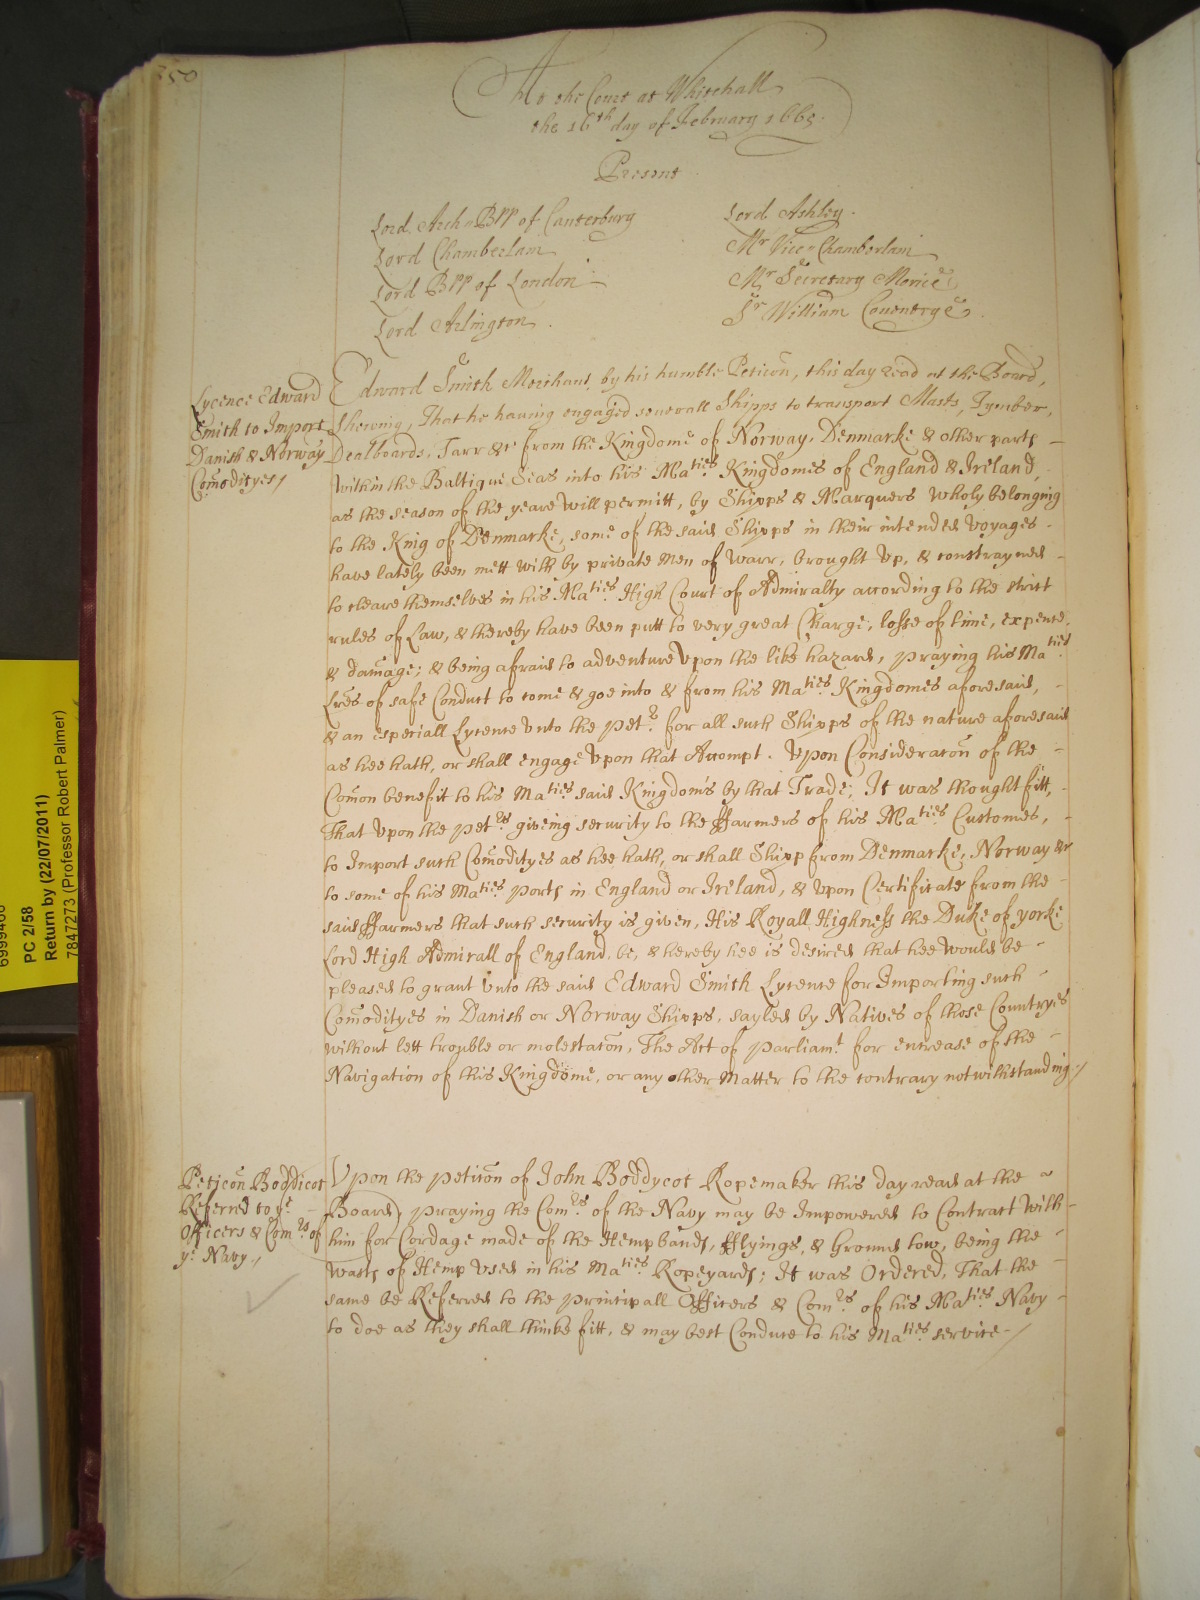 350
At the Court at Whitehall
the 16th day of February 1665.
Present
Lord Arch-Bpp of Canterbury
Lord Chamberlain
Lord Bpp of London
Lord Arlington.
Lord Ashley.
Mr Vice-Chamberlain
Mr Secretary Morice
Sr William Couentrye.
Lycence Edward
Smith to Import
Danish & Norway
Comodityes/
Edward Smith Merchant, by his humble Peticon, this day read at the Board,
Shewing, That he hauing engaged seuerall Shipps to transport Masts, Tymber,
Dealboards, Tarr &c from the Kingdome of Norway, Denmarke & other parts
within the Baltique Seas into his Maties Kingdomes of England & Ireland,
as the season of the yeare will permitt, by Shipps & Marquers wholy belonging
to the King of Denmarke, some of the said Shipps in their intended voyages
have lately been mett with by private Men of Warr, brought up, & constrayned
to cleare themselves in his Maties High Court of Admiralty according to the strict
rules of Law, & thereby have been putt to very great Charge, losse of time, expence,
& damage; & being afraid to adventure upon the like hazard, praying his Maties
Lres of safe Conduct to come & goe into & from his Maties Kingdomes aforesaid,
& an especiall Lycence unto the petr for all such Shipps of the nature aforesaid
as hee hath, or shall engage upon that Accompt. Upon Consideracon of the
Comon benefit to his Maties said Kingdom's by that Trade; It was thought fitt,
That upon the petrs giveing security to the ffarmers of his Maties Customes,
to Import such Comodityes as hee hath, or shall Shipp from Denmarke, Norway &c
to some of his Maties ports in England or Ireland, & upon Certificate from the
said ffarmers that such security is given, His Royall Highness the Duke of yorke
Lord High Admirall of England, be, & hereby hee is desired that hee would be
pleased to grant unto the said Edward Smith Lycence for Importing such
Comodityes in Danish or Norway Shipps, sayled by Natives of those Countryes
without lett trouble or molestacon, The Act of parliamt for encrease of the
Navigation of this Kingdome, or any other Matter to the contrary notwithstanding/
Peticon Boddicot
Referred to ye
Officers & Comrs of
ye Navy/
Upon the peticon of John Boddycot Ropemaker this day read at the
Board, praying the Comrs of the Navy may be Impowered to Contract with
him for Cordage made of the Hempbands, fflyings, & Ground tow, being the
wasts of Hemp used in his Maties Ropeyards; It was Ordered, That the
same be Referred to the principall Officers & Comrs of his Maties Navy
to doe as they shall thinke fitt, & may best Conduce to his Maties service/
PC 2/58
Return by (22/07/2011)
7847273 (Professor Robert Palmer)